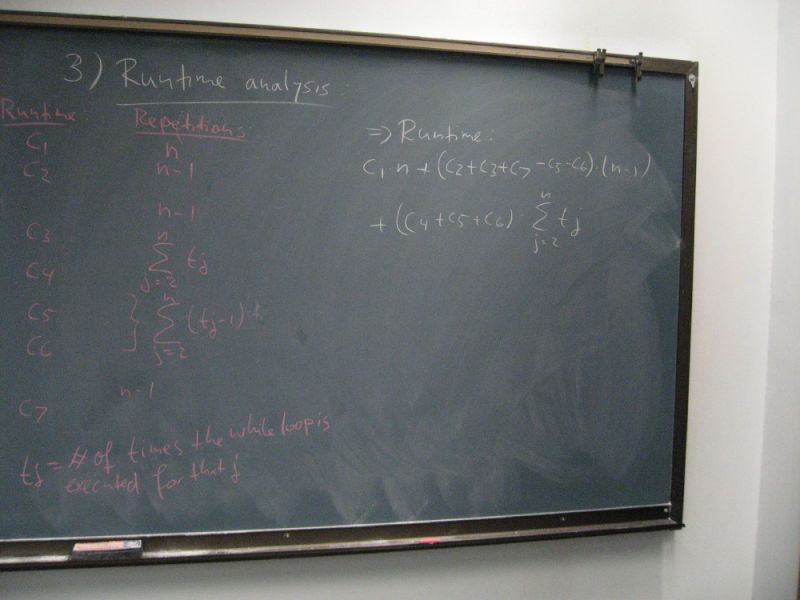 3) Runtime analysis:
Runtime: Repetitions:
C1 n
C2 n-1
C3 n-1
C4 n∑j=2 tj
C5 } n∑j=2 (tj-1)
C6
C7 n-1
tj = # of times the while loop is
executed for that j
=> Runtime:
C1 n + (C2+C3+C7-C5-C6)·(n-1)
+ (C4+C5+C6)· n∑j=2 tj